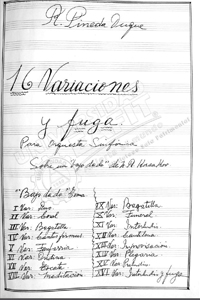 R. Pineda Duque
16 Variaciones
y fuga.
Para Orquesta Sinfonica
Sobre un "bajo dado" de
"Bajo dado" Tema
I Var.
II Var. Coral
III Var. Bagatella
IV Var. Cantus firmus
V Var. Fanfarria
VI Var.
VII Var. Tocata
VIII Var. Meditación
IX Var. Bagatella
X Var. Funeral
XI Var. Interludio
XII Var. Cantilena
XIII Var. Improvisación
XIV Var. Plegaria
XV Var. Preludio
XVI Var. Interludio y fuga